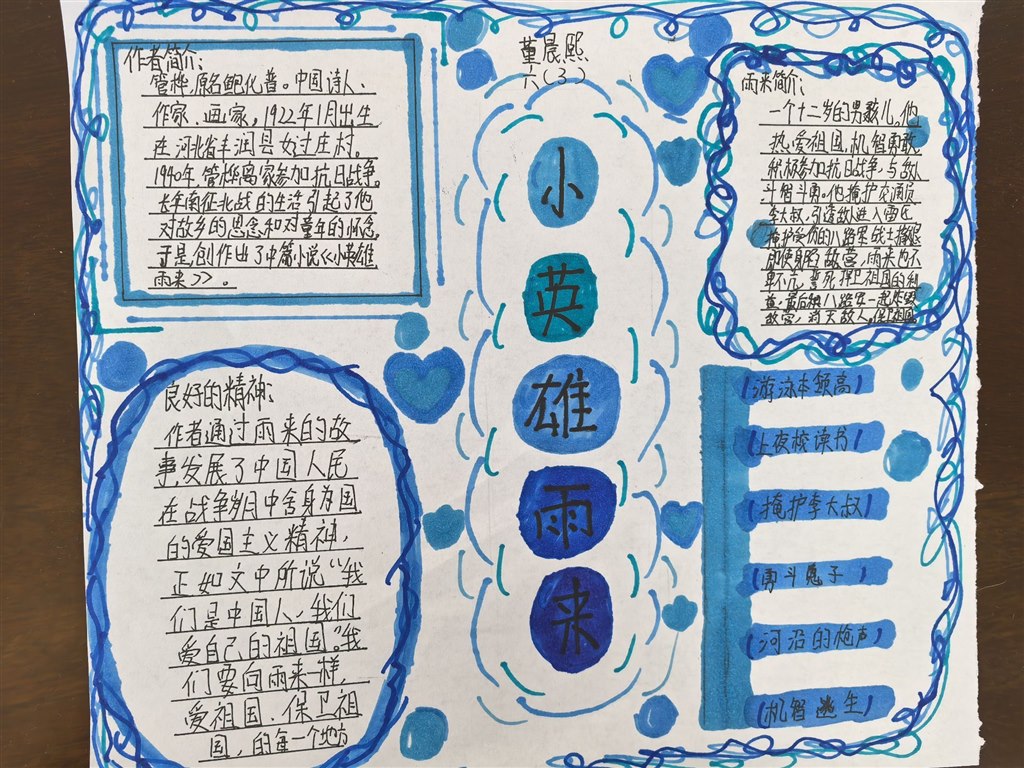 董晨熙
六(3)
小
英
雄
雨
来
作者简介:
管桦,原名鲍化普。中国诗人、
作家、画家,1922年1月出生
在河北省丰润县女过庄村。
1940年,管桦离家参加抗日战争。
长年南征北战的生活引起了他
对故乡的思念和对童年的怀念,
于是,创作出了中篇小说《小英雄
雨来》。
雨来简介:
一个十二岁的男孩儿,他
热爱祖国,机智勇敢,
积极参加抗日战争,与敌人
斗智斗勇。他掩护交通员
李大叔,引诱敌人进入雷区,
掩护受伤的八路军战士撤退
即使身陷敌营,雨来也不
卑不亢,誓死捍卫祖国的利
益。最后和八路军一起炸毁
敌营,消灭敌人。保卫祖国
良好的精神:
作者通过雨来的故
事,发展了中国人民
在战争岁月中舍身为国
的爱国主义精神,
正如文中所说“我
们是中国人,我们
爱自己的祖国。”我
们要向雨来一样,
爱祖国、保卫祖
国,的每一个地方
(游泳本领高)
(上夜校读书)
(掩护李大叔)
(勇斗鬼子)
(河沿的枪声)
(机智逃生)